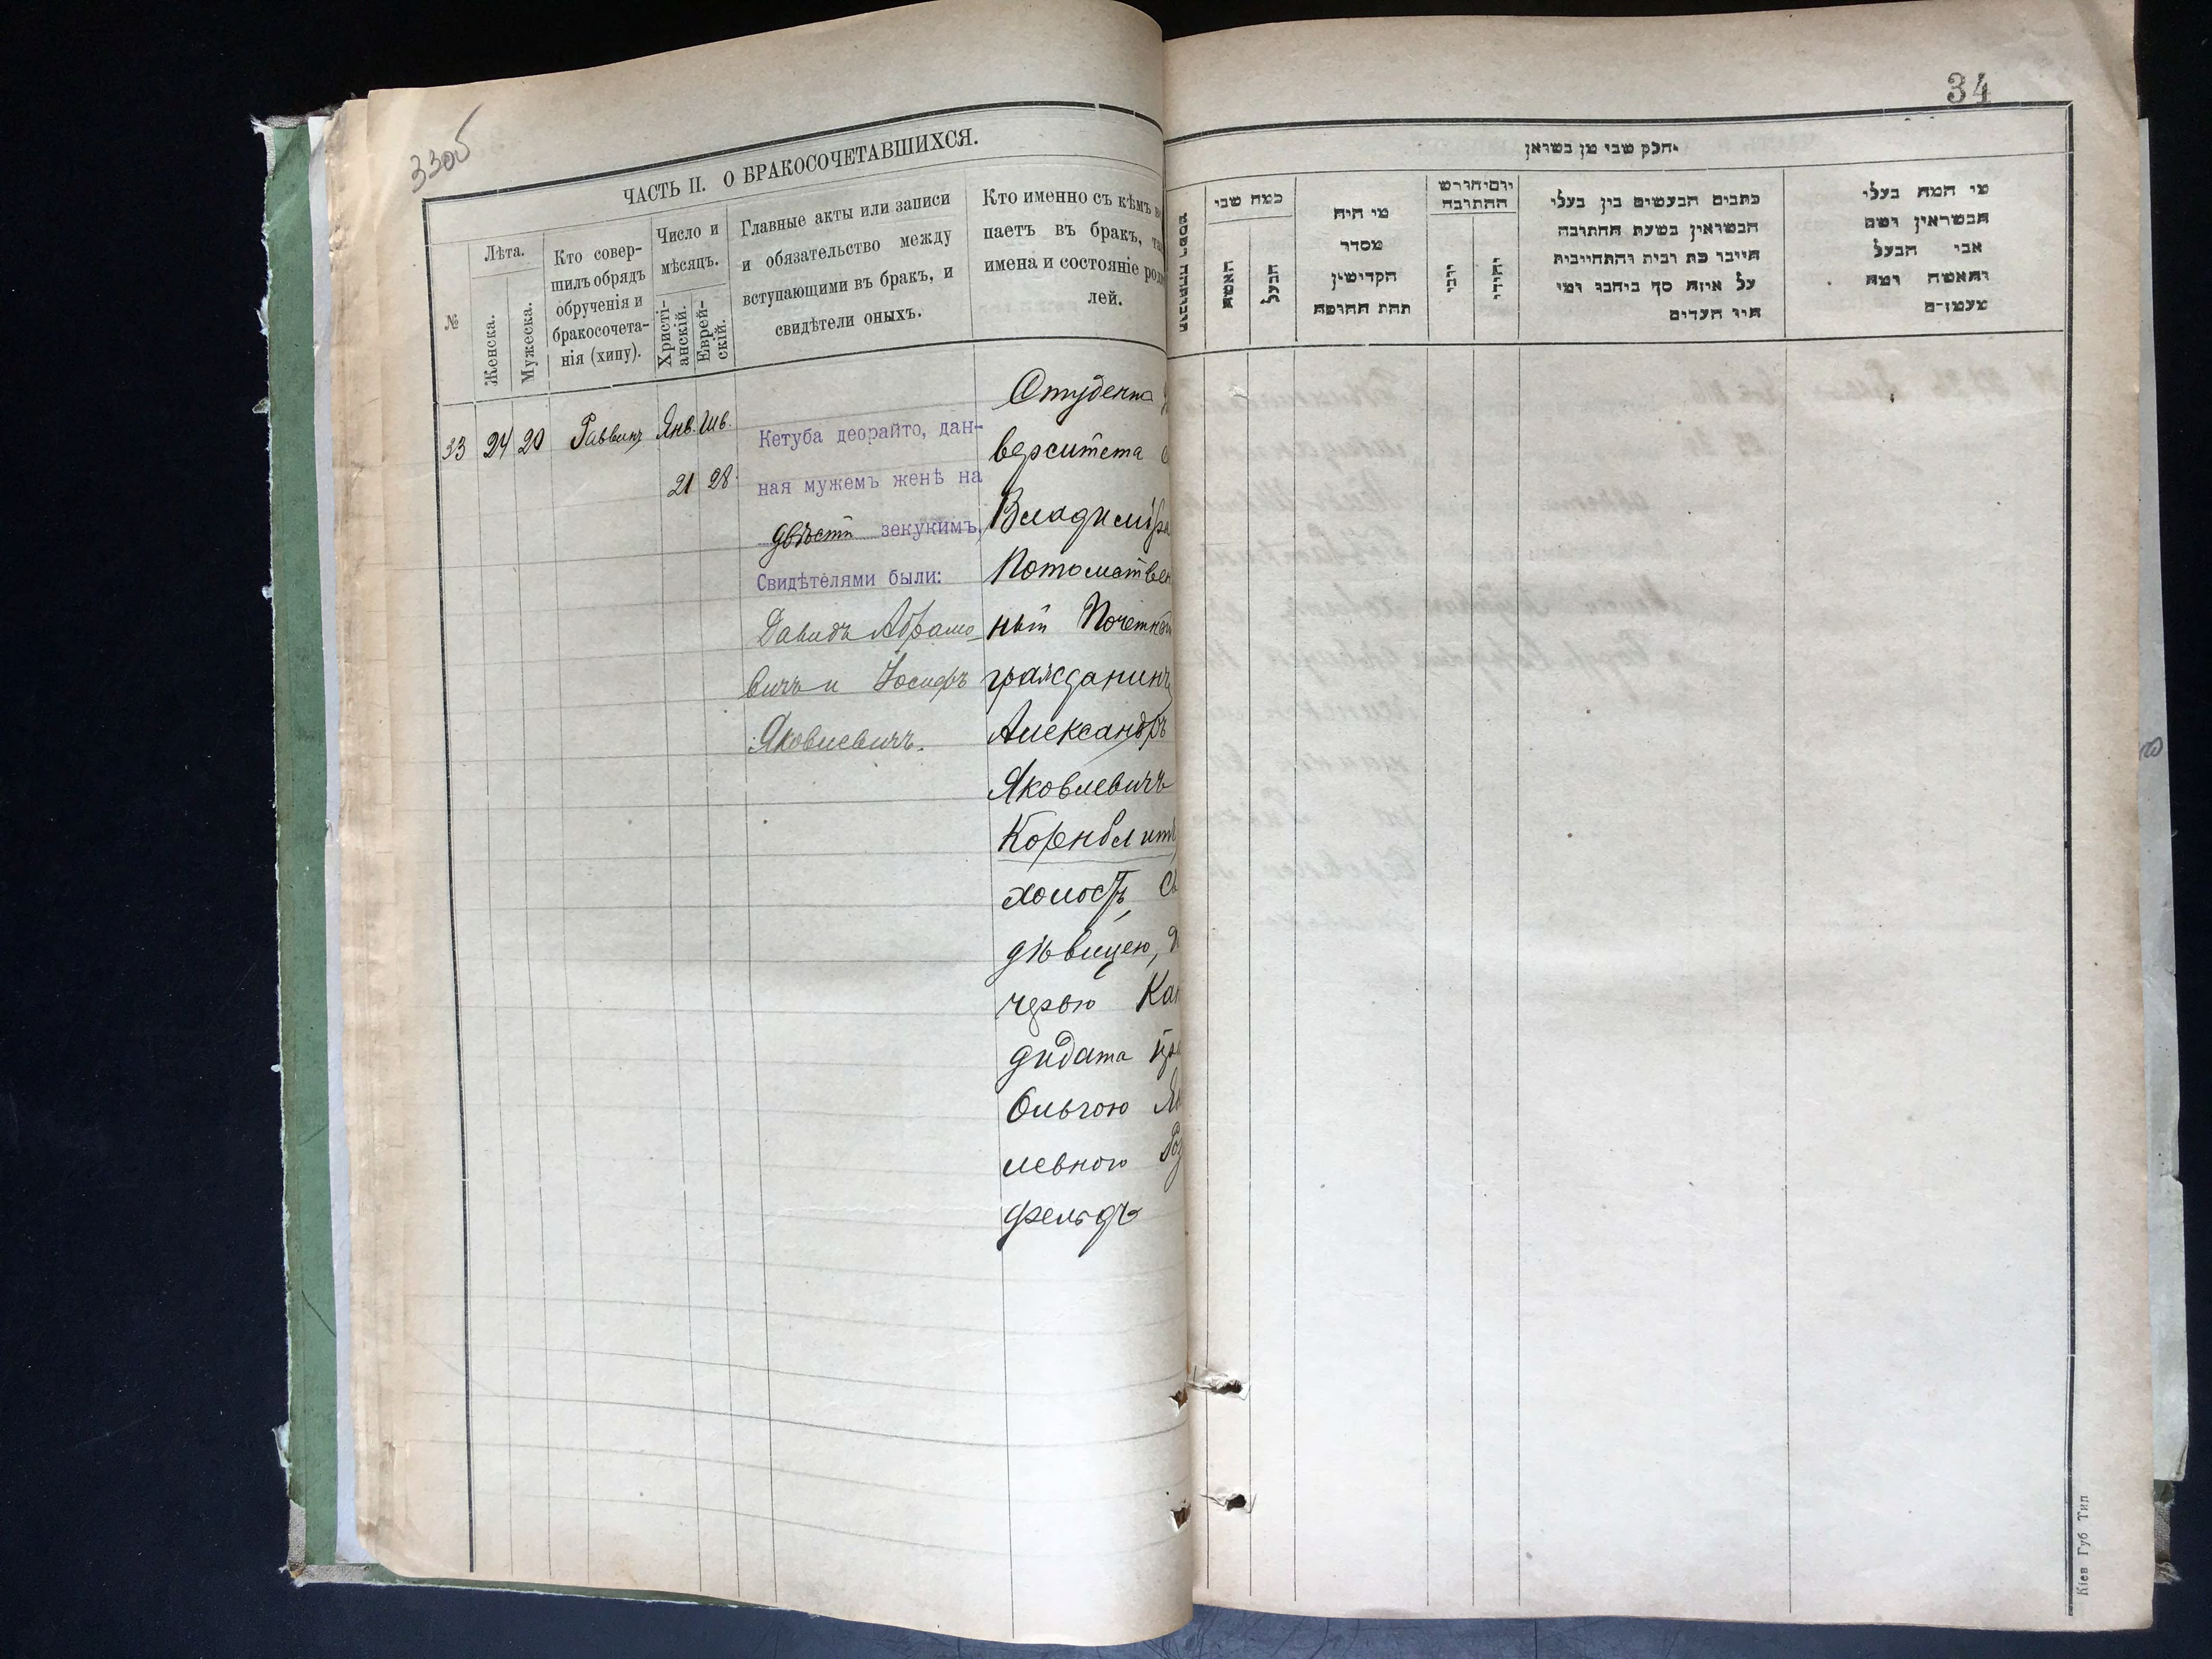 33об
ЧАСТЬ II. О БРАКОСОЧЕТАВШИХСЯ.
№
Лѣта.
Женска.
Мужеска.
Кто совер-
шилъ обрядъ
обрученія и
бракосочета-
нія (хипу).
Число и
мѣсяцъ.
Христі-
анскій.
Еврей-
скій.
Главные акты или записи
и обязательство между
вступающими въ бракъ, и
свидѣтели оныхъ.
Кто именно съ кѣмъ
паетъ въ бракъ,
имена и состояніе
лей.
33 24 20 Раввинъ Янв. Шв.
21 28
Кетуба деорайто, дан-
ная мужемъ женѣ на
двѣсти зекукимъ.
Свидѣтелями были:
Давидъ Абрамо-
вичъ и Іосифъ
Яковлевичъ.
Студентъ
верситета
Владиміра
Потомствен
ный Почетный
гражданинъ
Александръ
Яковлевичъ
Корнблитъ
холостъ, съ
дѣвицею,
черью Кан
дидата
Ольгою
левною
фельдъ
34
חלק שני מן בשואין
כמה שני
האשה
הבעל
מי היה
מסדר
הקדישין
תחת החופה
יום וחודש
החתובה
יוני
יהודי
כתבים הנעשים בין בעלי
הנשואין בשעת החתובה
חייבו כת ובית והתחייבות
על איזה סך ביחבו ומי
היו העדים
מי המה בעלי
הנשואין ושם
אבי הבעל
והאשה ומה
מעמדם
Кіев Губ Тип